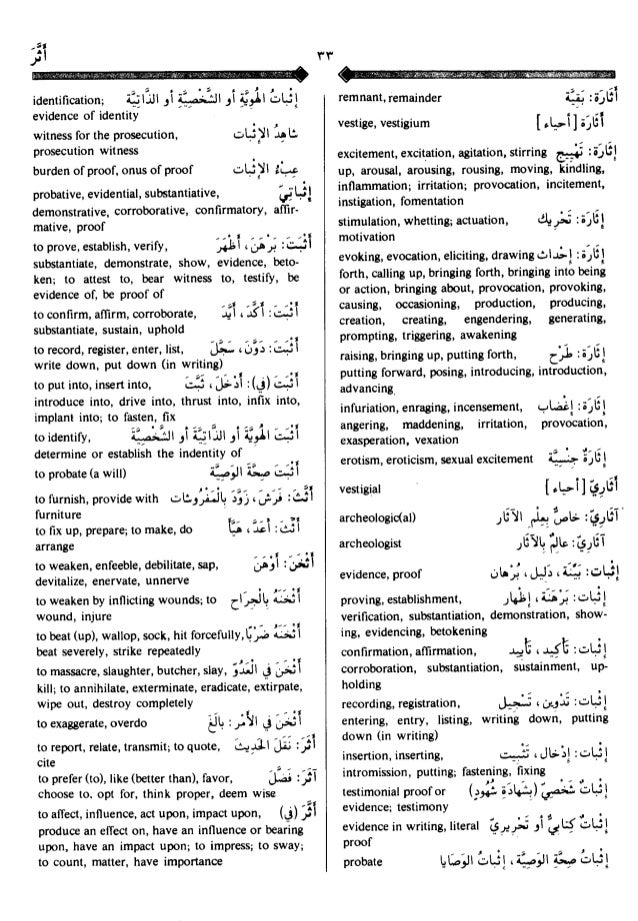 ٣٣
أَثَّرَ
أَثَارَة: بَقِيَّة remnant, remainder
أَثَارَة [أحياء] vestige, vestigium
إِثَارَة: تَهْيِيج excitement, excitation, agitation, stirring
up, arousal, arousing, rousing, moving, kindling,
inflammation; irritation; provocation, incitement,
instigation, fomentation
إِثَارَة: تَحْرِيك stimulation, whetting; actuation,
motivation
إِثَارَة: إِحْدَاث evoking, evocation, eliciting, drawing
forth, calling up, bringing forth, bringing into being
or action, bringing about, provocation, provoking,
causing, occasioning, production, producing,
creation, creating, engendering, generating,
prompting, triggering, awakening
إِثَارَة: طَرْح raising, bringing up, putting forth,
putting forward, posing, introducing, introduction,
advancing
إِثَارَة: إِغْضَاب infuriation, enraging, incensement,
angering, maddening, irritation, provocation,
exasperation, vexation
إِثَارَةٌ جِنْسِيَّة erotism, eroticism, sexual excitement
أَثَارِيّ [أحياء] vestigial
آثَارِيّ: خاصٌّ بِعِلْمِ الآثَار archeologic(al)
آثَارِيّ: عالِمٌ بِالآثَار archeologist
إِثْبات: بَيِّنَة، دَلِيل، بُرْهان evidence, proof
إِثْبات: بَرْهَنَة، إِظْهار proving, establishment,
verification, substantiation, demonstration, show-
ing, evidencing, betokening
إِثْبات: تَأْكِيد، تَأْيِيد confirmation, affirmation,
corroboration, substantiation, sustainment, up-
holding
إِثْبات: تَدْوِين، تَسْجِيل recording, registration,
entering, entry, listing, writing down, putting
down (in writing)
إِثْبات: إِدْخال، تَثْبِيت insertion, inserting,
intromission, putting; fastening, fixing
إِثْباتٌ شَخْصِيّ (بِشَهَادَةِ شُهُود) testimonial proof or
evidence; testimony
إِثْباتٌ كِتابِيٌّ أو تَحْرِيرِيّ evidence in writing, literal
proof
إِثْباتُ صِحَّةِ الوَصِيَّة، إِثْباتُ الوَصَايا probate
إِثْباتُ الهُوِيَّةِ أو الشَّخْصِيَّةِ أو الذَّاتِيَّة identification;
evidence of identity
شاهِدُ الإثْبات witness for the prosecution,
prosecution witness
عِبْءُ الإثْبات burden of proof, onus of proof
إِثْباتِيّ probative, evidential, substantiative,
demonstrative, corroborative, confirmatory, affir-
mative, proof
أَثْبَتَ: بَرْهَنَ، أَظْهَرَ to prove, establish, verify,
substantiate, demonstrate, show, evidence, beto-
ken; to attest to, bear witness to, testify, be
evidence of, be proof of
أَثْبَتَ: أَكَّدَ، أَيَّدَ to confirm, affirm, corroborate,
substantiate, sustain, uphold
أَثْبَتَ: دَوَّنَ، سَجَّلَ to record, register, enter, list,
write down, put down (in writing)
أَثْبَتَ (في): أَدْخَلَ، ثَبَّتَ to put into, insert into,
introduce into, drive into, thrust into, infix into,
implant into; to fasten, fix
أَثْبَتَ الهُوِيَّةَ أو الذَّاتِيَّةَ أو الشَّخْصِيَّة to identify,
determine or establish the indentity of
أَثْبَتَ صِحَّةَ الوَصِيَّة to probate (a will)
أَثَّثَ: فَرَشَ، زَوَّدَ بِالمَفْرُوشات to furnish, provide with
furniture
أَثَّثَ: أَعَدَّ، هَيَّأَ to fix up, prepare; to make, do
arrange
أَثْخَنَ: أَوْهَنَ to weaken, enfeeble, debilitate, sap,
devitalize, enervate, unnerve
أَثْخَنَهُ بِالجِرَاح to weaken by inflicting wounds; to
wound, injure
أَثْخَنَهُ ضَرْبًا to beat (up), wallop, sock, hit forcefully,
beat severely, strike repeatedly
أَثْخَنَ في العَدُوّ to massacre, slaughter, butcher, slay,
kill; to annihilate, exterminate, eradicate, extirpate,
wipe out, destroy completely
أَثْخَنَ في الأَمْر: بالَغَ to exaggerate, overdo
أَثَرَ: نَقَلَ الحَدِيثَ to report, relate, transmit; to quote,
cite
آثَرَ: فَضَّلَ to prefer (to), like (better than), favor,
choose to, opt for, think proper, deem wise
أَثَّرَ (في) to affect, influence, act upon, impact upon,
produce an effect on, have an influence or bearing
upon, have an impact upon; to impress; to sway;
to count, matter, have importance